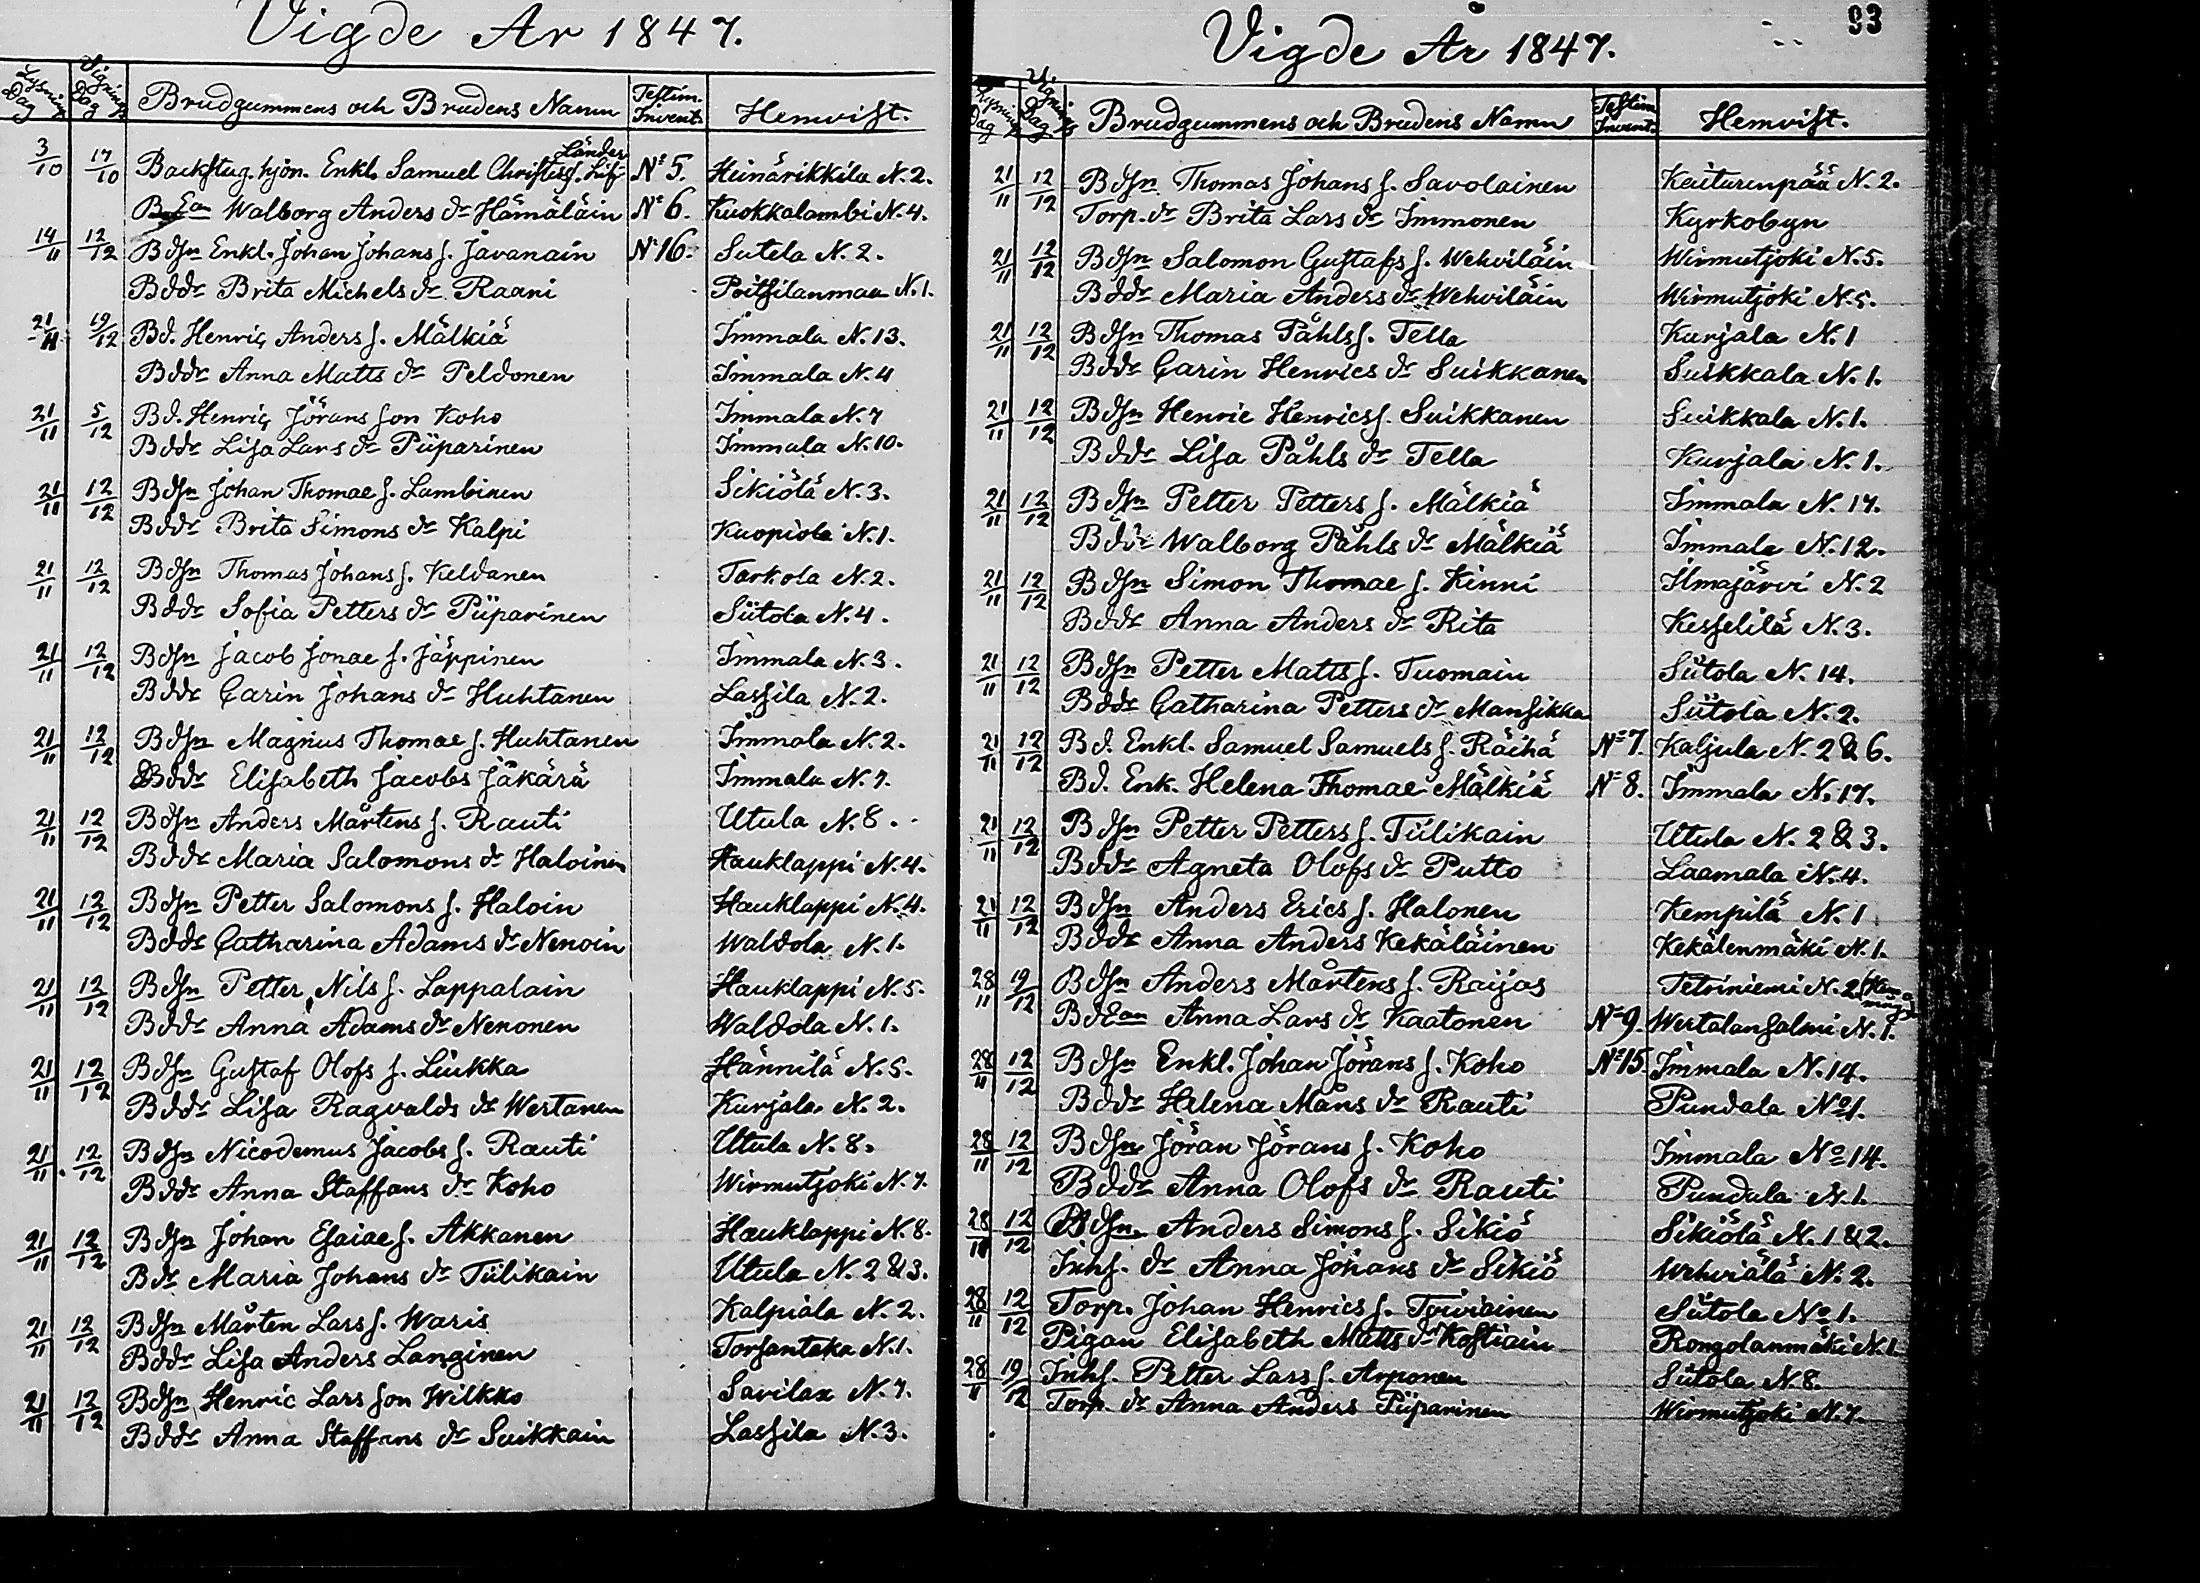 Vigde Ar 1847.
Lysnings Dag Vignings Dag Brudgummens och Brudens Namn Testim. Invent. Hemvist.
3/10 17/10 Backstug. hjon. Enkl. Samuel Christers s. Länder N:o 5. Heinärikkila N. 2.
B Ean Walborg Anders dr Hämäläin N:o 6. Kuokkalambi N. 4.
14/11 12/12 Bdsn Enkl. Johan Johans s. Javanain N:o 16. Sutela N. 2.
Bddr Brita Michels dr Raani Poitsilanmaa N. 1.
21/11 19/12 Bd. Henric Anders s. Mälkiä Immala N. 13.
Bddr Anna Matts dr Peldonen Immala N. 4
21/11 5/12 Bd. Henric Jörans son Koho Immala N. 7
Bddr Lisa Lars dr Piiparinen Immala N. 10.
21/11 12/12 Bdsn Johan Thomae s. Lambinen Sikiölä N. 3.
Bddr Brita Simons dr Kalpi Kuopiola N. 1.
21/11 12/12 Bdsn Thomas Johans s. Keldanen Tarkola N. 2.
Bddr Sofia Petters dr Piiparinen Siitola N. 4.
21/11 12/12 Bdsn Jacob Jonae s. Jäppinen Immala N. 3.
Bddr Carin Johans dr Huhtanen Lassila N. 2.
21/11 12/12 Bdsn Magnus Thomae s. Huhtanen Immala N. 2.
Bddr Elisabeth Jacobs Jäkärä Immala N. 7.
21/11 12/12 Bdsn Anders Mårtens s. Rauti Utula N. 8.
Bddr Maria Salomons dr Haloinen Hauklappi N. 4.
21/11 12/12 Bdsn Petter Salomons s. Haloin Hauklappi N. 4.
Bddr Catharina Adams dr Nenoin Waldola N. 1.
21/11 12/12 Bdsn Petter Nils s. Lappalain Hauklappi N. 5.
Bddr Anna Adams dr Nenonen Waldola N. 1.
21/11 12/12 Bdsn Gustaf Olofs s. Liukka Hännilä N. 5.
Bddr Lisa Ragvalds dr Wertanen Kurjala N. 2.
21/11 12/12 Bdsn Nicodemus Jacobs s. Rauti Utula N. 8.
Bddr Anna Staffans dr Koho Wirmutjoki N. 7.
21/11 12/12 Bdsn Johan Esaiae s. Akkanen Hauklappi N. 8.
Bdr Maria Johans dr Tiilikain Utula N. 2 & 3.
21/11 12/12 Bdsn Mårten Lars s. Waris Kalpiala N. 2.
Bddr Lisa Anders Langinen Torsanteka N. 1.
21/11 12/12 Bdsn Henric Lars son Wilkko Savilax N. 7.
Bddr Anna Staffans dr Suikkain Lassila N. 3.
93
Vigde År 1847.
Lysnings Dag Vignings Dag Brudgummens och Brudens Namn Testim. Invent. Hemvist.
21/11 12/12 Bdsn Thomas Johans s. Savolainen Kaiturinpää N. 2.
Torp. dr Brita Lars dr Immonen Kyrkobyn
21/11 12/12 Bdsn Salomon Gustafs s. Wehviläin Wirmutjoki N. 5.
Bddr Maria Anders dr Wehviläin Wirmutjoki N. 5.
21/11 12/12 Bdsn Thomas Påhls s. Tella Kurjala N. 1
Bddr Carin Henrics dr Suikkanen Suikkala N. 1.
21/11 12/12 Bdsn Henric Henrics s. Suikkanen Suikkala N. 1.
Bddr Lisa Påhls dr Tella Kurjala N. 1.
21/11 12/12 Bdsn Petter Petters s. Mälkiä Immala N. 17.
Bddr Walborg Påhls dr Mälkiä Immala N. 12.
21/11 12/12 Bdsn Simon Thomae s. Kinni Ilmajärvi N. 2
Bddr Anna Anders dr Rita Kesselilä N. 3.
21/11 12/12 Bdsn Petter Matts s. Tuomain Siitola N. 14.
Bddr Catharina Petters dr Mansikka Siitola N. 2.
21/11 12/12 Bd. Enkl. Samuel Samuels s. Räihä N:o 7. Kaljula N. 2 & 6.
Bd. Enk. Helena Thomae Mälkiä N:o 8. Immala N. 17.
21/11 12/12 Bdsn Petter Petters s. Tiilikain Utula N. 2 & 3.
Bddr Agneta Olofs dr Putto Laamala N. 4.
21/11 12/12 Bdsn Anders Erics s. Halonen Kempilä N. 1
Bddr Anna Anders Kekäläinen Kekälenmäki N. 1.
28/11 19/12 Bdsn Anders Mårtens s. Raijas Tetriniemi N. 2
BdEan Anna Lars dr Kaatonen N:o 9. Wertalansalmi N. 1.
28/11 12/12 Bdsn Enkl. Johan Jörans s. Koho N:o 15. Immala N. 14.
Bddr Helena Måns dr Rauti Pundala No 1.
28/11 12/12 Bdsn Jöran Jörans s. Koho Immala No 14.
Bddr Anna Olofs dr Rauti Pundala N. 1.
28/11 12/12 Bdsn Anders Simons s. Sikiö Sikiölä N. 1 & 2.
Inhs. dr Anna Johans dr Sikiö Wehviälä N. 2.
28/11 12/12 Torp. Johan Henrics s. Toiviainen Siitola No 1.
Pigan Elisabeth Matts dr Kostiain Rongolanmäki N. 1
28/11 19/12 Inhs. Petter Lars s. Arponen Siitola N. 8.
Torp. dr Anna Anders Piiparinen Wirmutjoki N. 7.